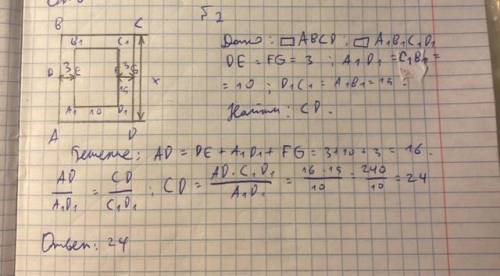 Б 2
B C
B1 C1
D 3 E F 3 G
15 x
A1 10 D1
A D
Дано: ▭ABCD; ▭A1B1C1D1
DE = FG = 3; A1D1 = C1B1 =
= 10; D1C1 = A1B1 = 15.
Найти: CD.
Решение: AD = DE + A1D1 + FG = 3+10+3 = 16.
AD/A1D1 = CD/C1D1; CD = AD·C1D1/A1D1 = 16·15/10 = 240/10 = 24
Ответ: 24